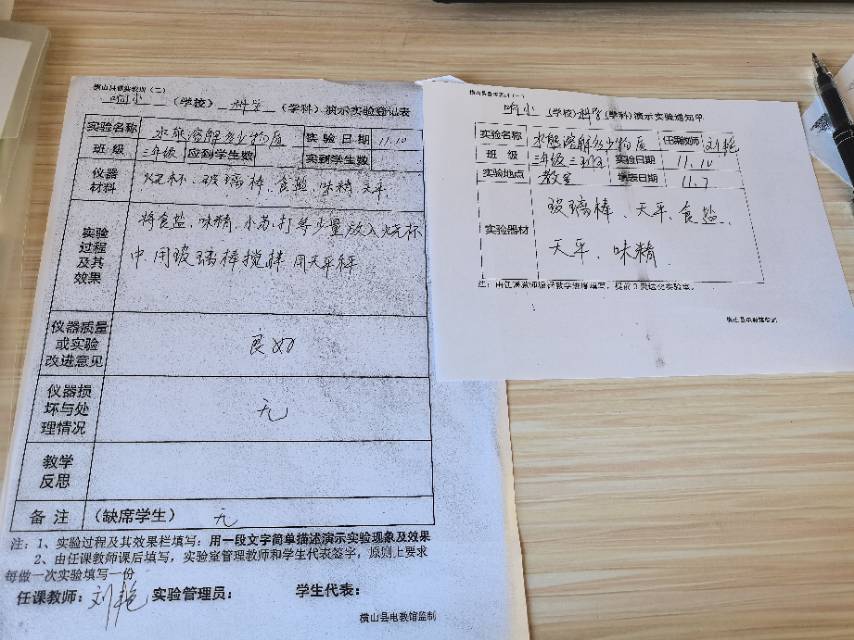 横山县电教馆（二）
响小（学校）科学（学科）演示实验登记表
实验名称 水能溶解多少物质 实验日期 11.10
班级 三年级 应到学生数 实到学生数
仪器材料 烧杯、玻璃棒、食盐、味精、天平
实验过程及其效果 将食盐、味精、小苏打等少量放入烧杯
中用玻璃棒搅拌 用天平秤
仪器质量或实验改进意见 良好
仪器损坏与处理情况 无
教学反思
备注 （缺席学生） 无
注：1、实验过程及其效果栏填写：用一段文字简单描述演示实验现象及效果
2、由任课教师课后填写，实验室管理教师和学生代表签字，原则上要求
每做一次实验填写一份
任课教师：刘艳 实验管理员： 学生代表：
横山县电教馆监制
响小（学校）科学（学科）演示实验通知单
实验名称 水能溶解多少物质 任课教师 刘艳
班级 三年级三班 实验日期 11.10
实验地点 教室 填表日期 11.7
实验器材 玻璃棒、天平、食盐、
天平、味精
横山县电教馆监制